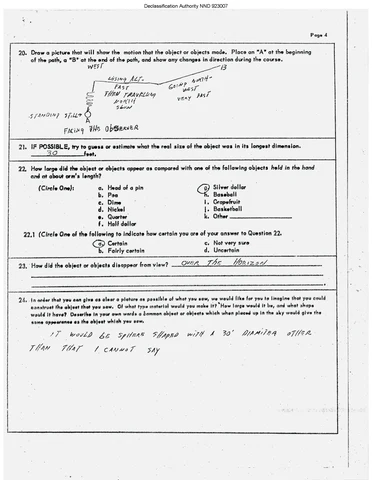 Declassification Authority NND 923007
Page 4
20. Draw a picture that will show the motion that the object or objects made. Place an "A" at the beginning
of the path, a "B" at the end of the path, and show any changes in direction during the course.
WEST
B
LOSING ALT.
FAST
THEN TRAVELING
NORTH
SLOW
GOING NORTH-
WEST
VERY FAST
STANDING STILL
A
FACING THE OBSERVER
21. IF POSSIBLE, try to guess or estimate what the real size of the object was in its longest dimension.
30 feet.
22. How large did the object or objects appear as compared with one of the following objects held in the hand
and at about arm's length?
(Circle One):
a. Head of a pin
b. Pea
c. Dime
d. Nickel
e. Quarter
f. Half dollar
g. Silver dollar
h. Baseball
i. Grapefruit
j. Basketball
k. Other
22.1 (Circle One of the following to indicate how certain you are of your answer to Question 22.
a. Certain
b. Fairly certain
c. Not very sure
d. Uncertain
23. How did the object or objects disappear from view? OVER THE HORIZON
24. In order that you can give as clear a picture as possible of what you saw, we would like for you to imagine that you could
construct the object that you saw. Of what type material would you make it? How large would it be, and what shape
would it have? Describe in your own words a common object or objects which when placed up in the sky would give the
same appearance as the object which you saw.
IT WOULD BE SPHERE SHAPED WITH A 30' DIAMITER OTHER
THAN THAT I CANNOT SAY